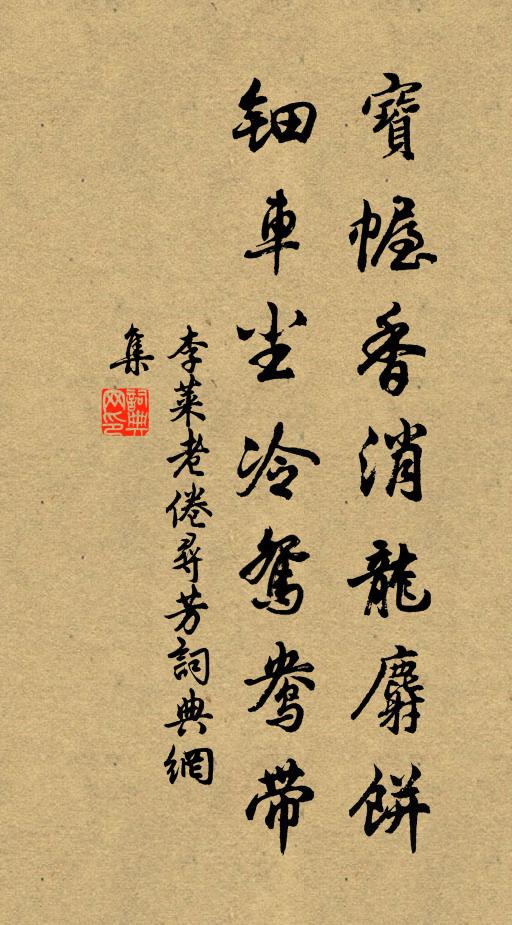 寶幄香消龍麝餅
鈿車尘冷鴛鴦帶
李萊老倦尋芳詞典網
集
詞典
网印